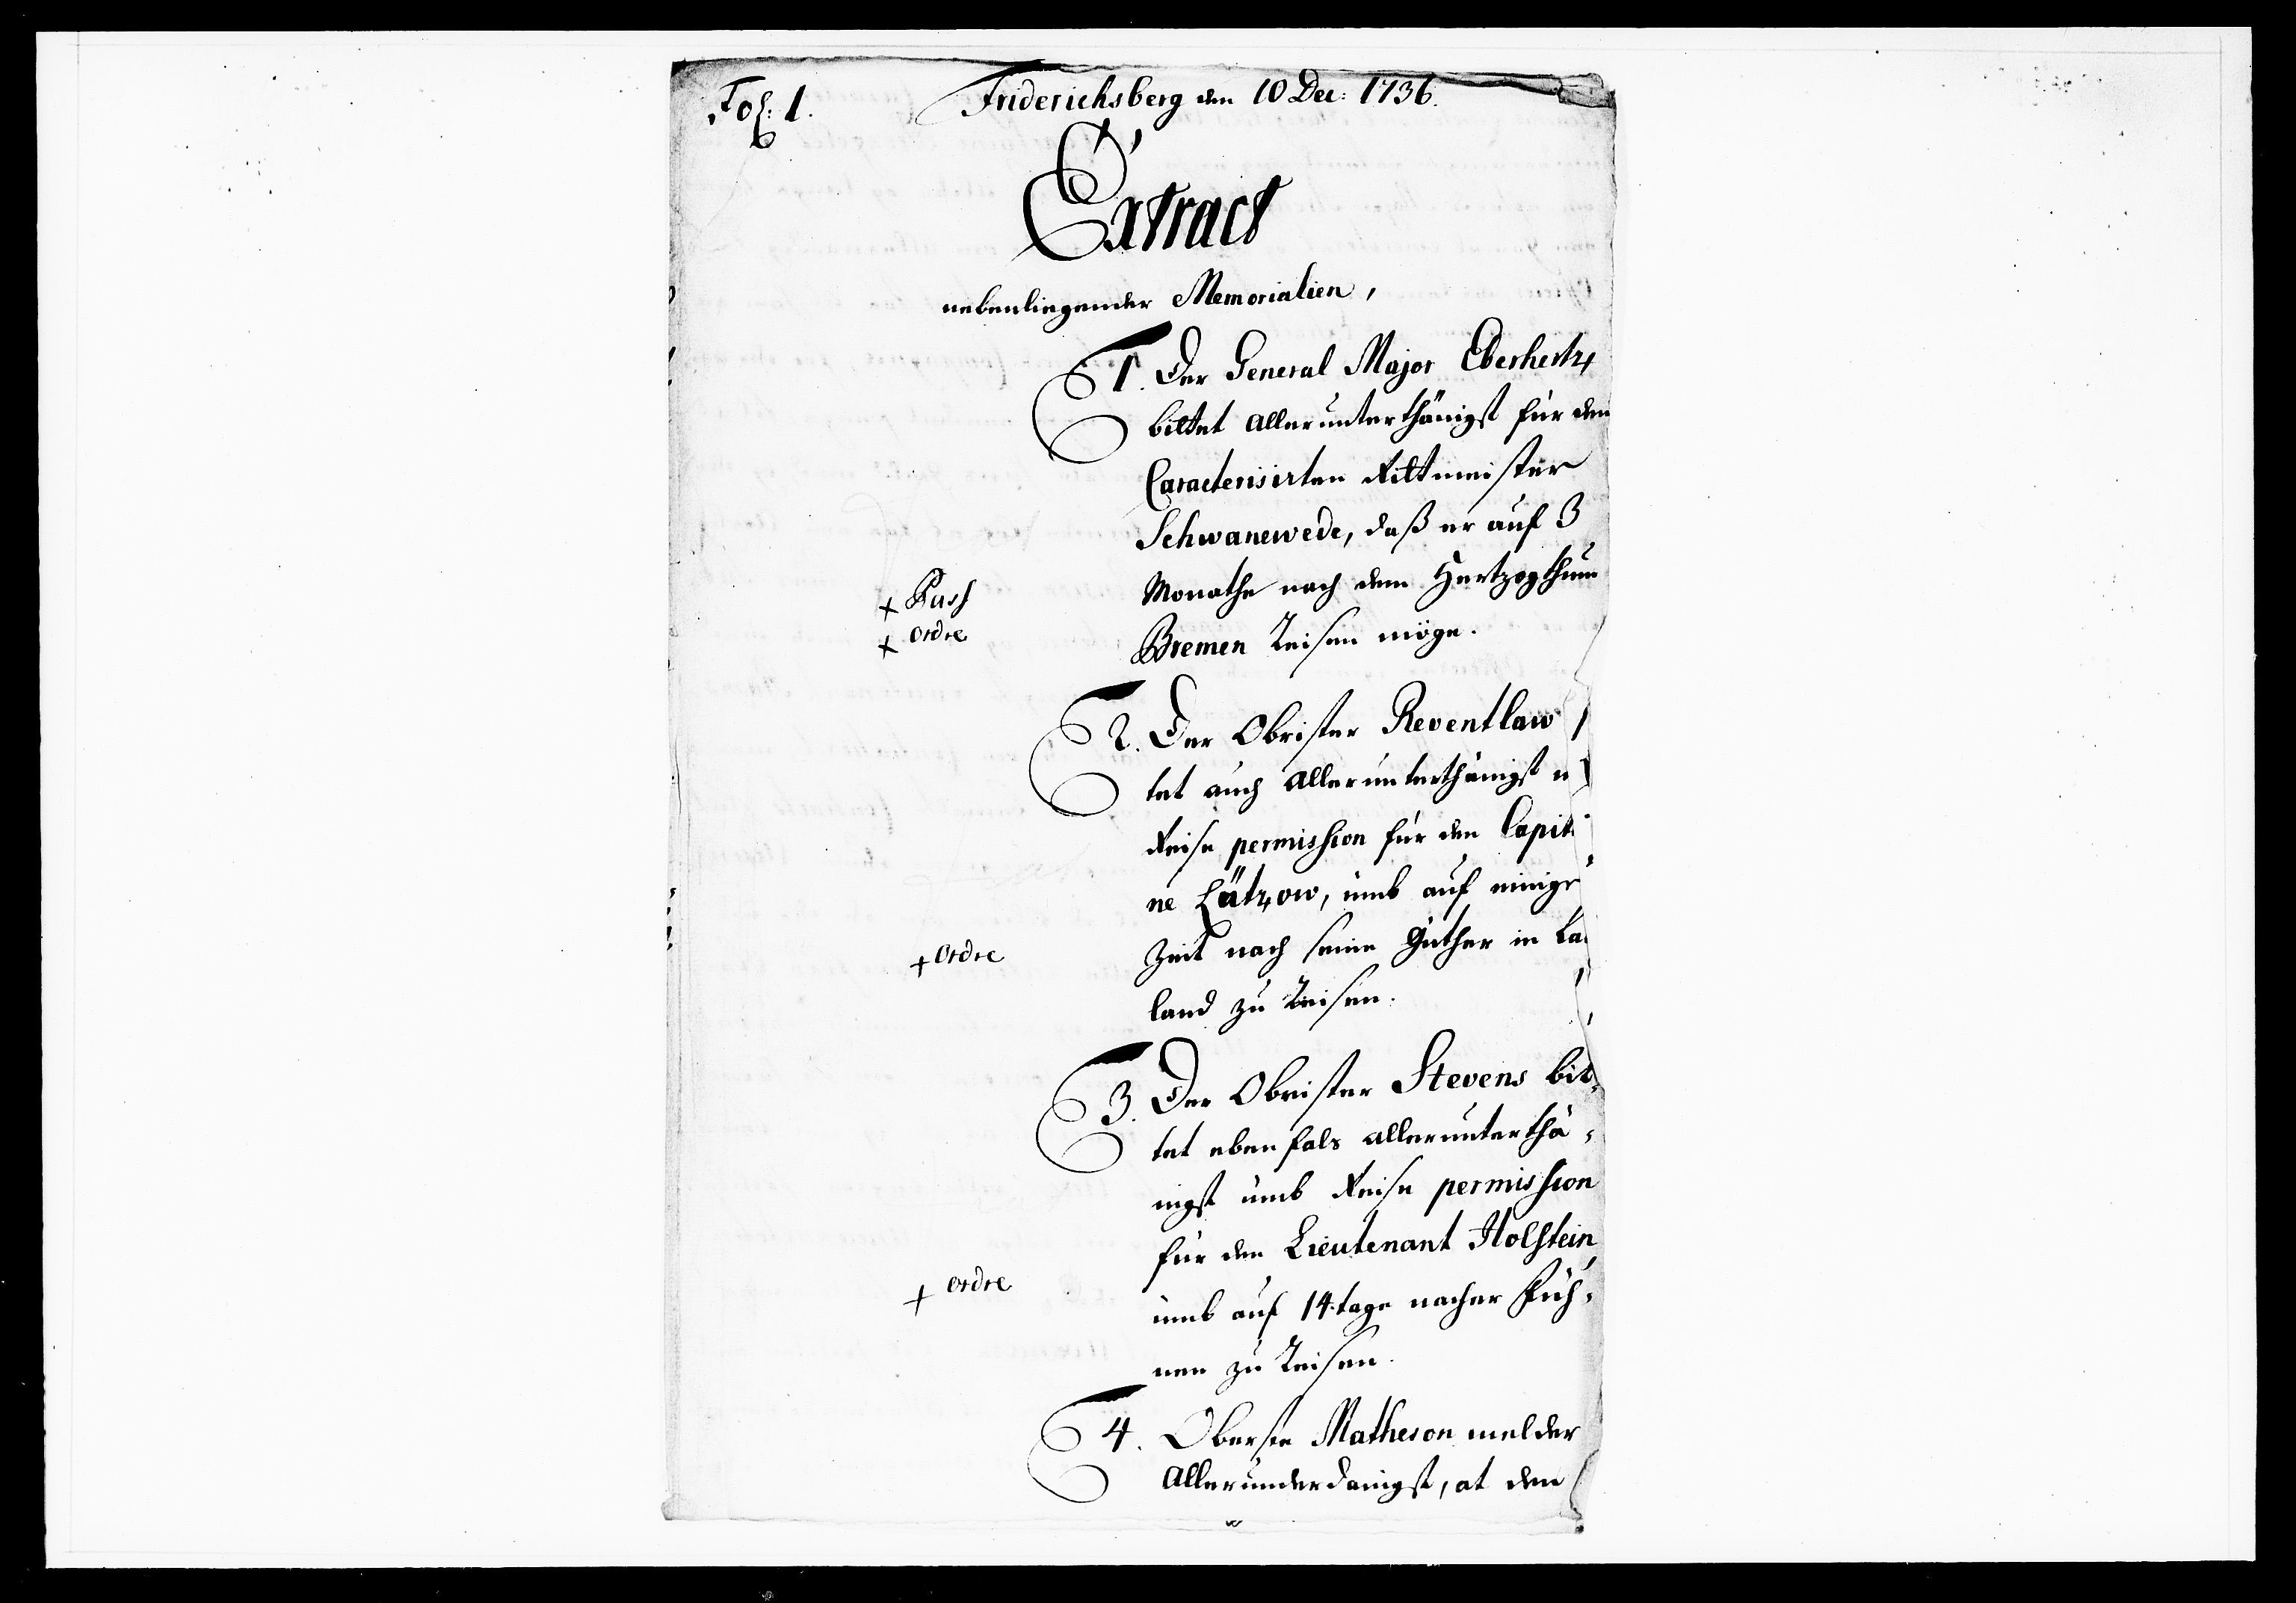 Fol: 1.
Friderichsberg den 10 Dec: 1736.
Extract
nebenliegender Memorialien,
1. Der General Major Eberhertz
bittet allerunterthänigst für den
Caracterisirten Rittmeister
Schwanewede, daß er auf 3
Monathe nach dem Hertzogthum
+ Pass
+ ordre
Bremen Reisen möge.
2. Der Obrister Reventlaw
tet auch allerunterthänigst
Reise permission für den Capit
ne Lützow, umb auf einige
+ ordre
Zeit nach seine Güther in La
land zu Reisen.
3. Der Obrister Stevens bit-
tet ebenfals allerunterthä-
nigst umb Reise permission
für den Lieutenant Holstein,
+ ordre
umb auf 14. tage nacher Füh-
nen zu Reisen.
4. Oberste Matheson melder
allerunderdanigst, at den